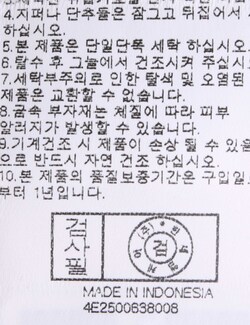 4.지퍼나 단추들은 잠그고 뒤집어서
하십시오.
5.본 제품은 단일단독 세탁 하십시오.
6.탈수 후 그늘에서 건조시켜 주십시오
7.세탁부주의로 인한 탈색 및 오염된
제품은 교환할 수 없습니다.
8.금속 부자재는 체질에 따라 피부
알러지가 발생할 수 있습니다.
9.기계건조 시 제품이 손상 될 수 있
으로 반드시 자연 건조 하십시오.
10.본 제품의 품질보증기간은 구입일
부터 1년입니다.
검사필
검
MADE IN INDONESIA
4E2500638008